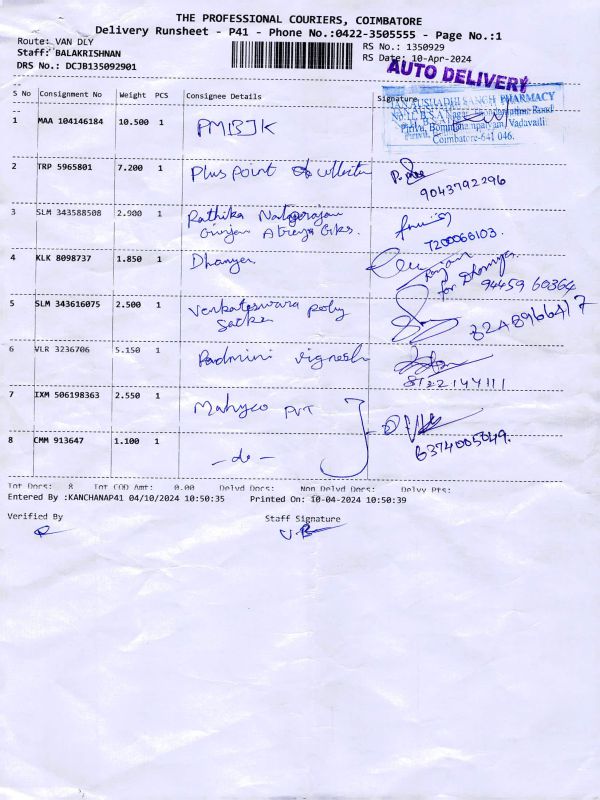 THE PROFESSIONAL COURIERS, COIMBATORE
Delivery Runsheet - P41 - Phone No.:0422-3505555 - Page No.:1
Route: VAN DLY
RS No.: 1350929
Staff: BALAKRISHNAN
RS Date: 10-Apr-2024
DRS No.: DCJB135092901
AUTO DELIVERY
S No Consignment No Weight PCS Consignee Details Signature
JANAUSHADHI SANGH PHARMACY
Pirivu, Bommanampalayam, Vadavalli
Coimbatore-641 046.
1 MAA 104146184 10.500 1 PMBJK
2 TRP 5965801 7.200 1 Plus point
9043792296
3 SLM 343588508 2.900 1 Rathika Natarajan
7200066103.
4 KLK 8098737 1.850 1 Dhanyer
for Dhanya
94459 60364
5 SLM 343616075 2.500 1 Venkateswara poly
Sacks
6 VLR 3236706 5.150 1 Padmini vignesh
8122144111
7 IXM 506198363 2.550 1 Mahyco PVT
6374005049.
8 CMM 913647 1.100 1 - do -
Tot Docs: 8 Tot COD Amt: 0.00 Delvd Docs: Non Delvd Docs: Delvy Pts:
Entered By :KANCHANAP41 04/10/2024 10:50:35 Printed On: 10-04-2024 10:50:39
Verified By Staff Signature